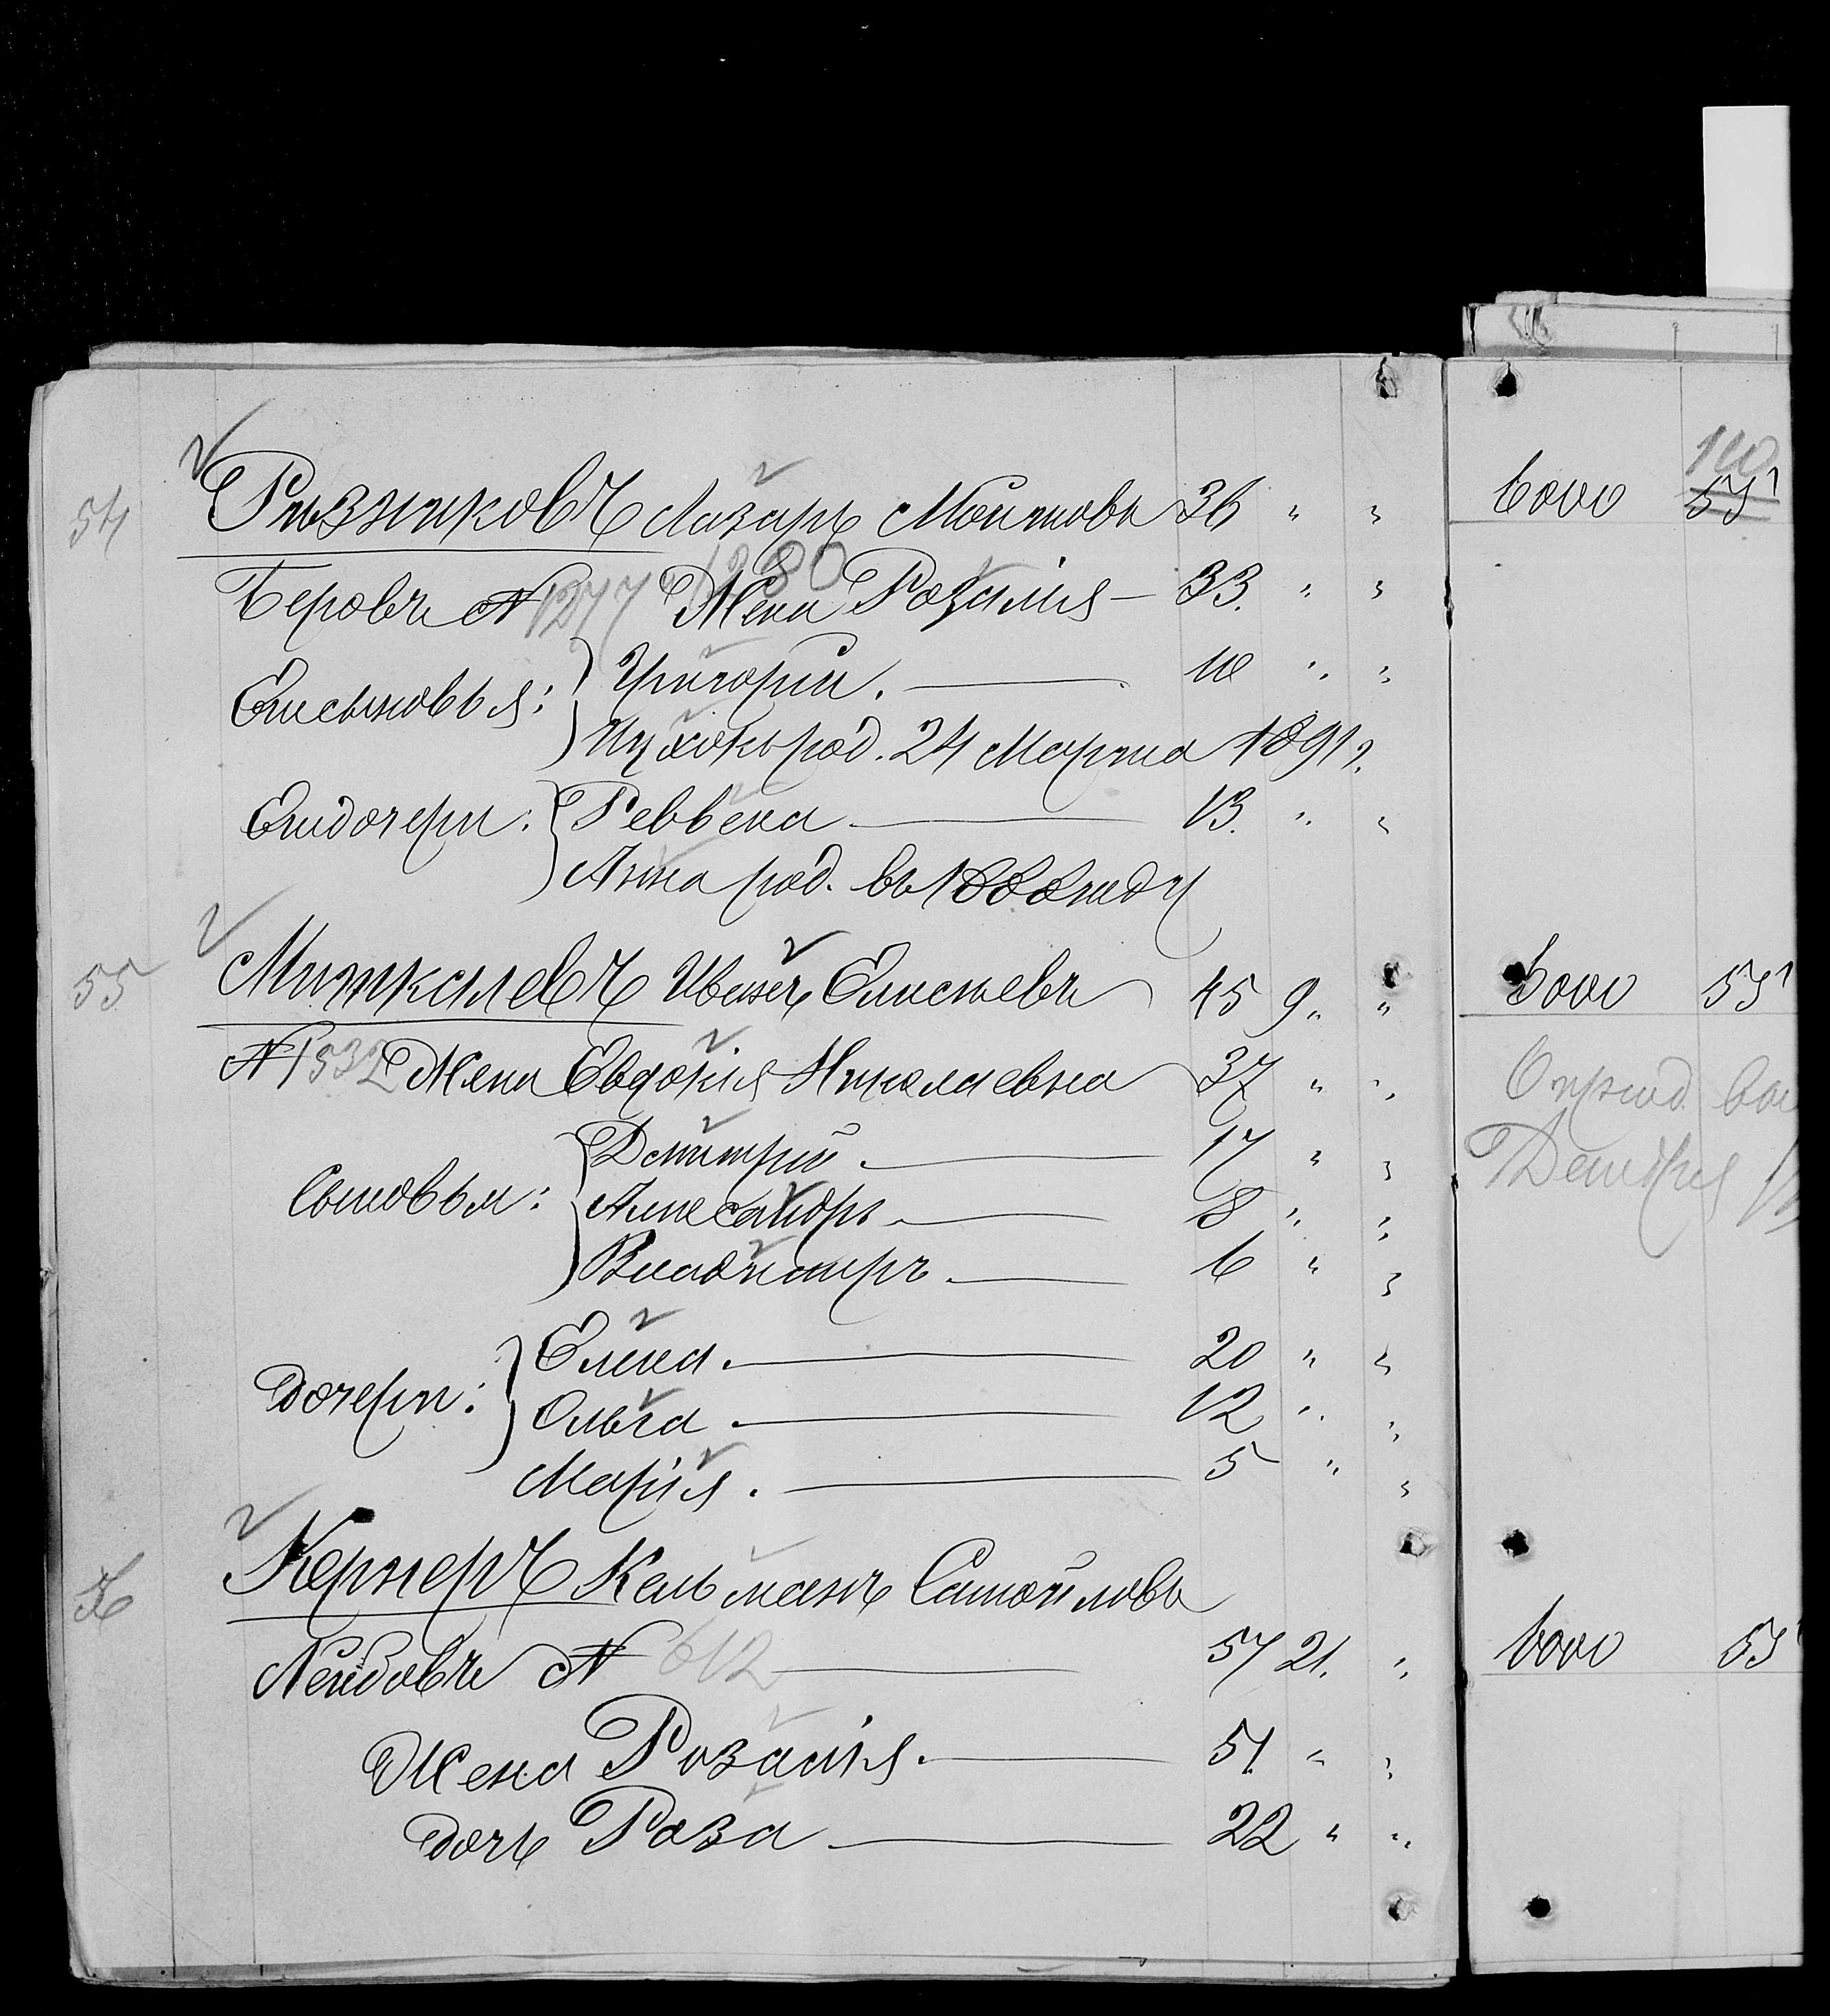 54 Рѣзниковъ Лазарь Мошковъ 36 " " 6000 110 55
Беровъ № 1277 1280 Жена Розалия — 33. " "
Его сыновья: Григорій. — 10 " "
Ицхокъ род. 24 Марта 1891 г.
Его дочери: Реввека — 13. " "
Анна род. въ 1888 году
55 Миткалевъ Иванъ Елисѣевъ 45 9 " " 6000 55
№ 1532 Жена Евдокія Николаевна 37 " "
Сыновья: Дмитрій. — 17 " "
Александръ — 8 " "
Владиміръ. — 6 " "
Дочери: Елена. — 20 " "
Ольга. — 12 " "
Марія. — 5 " "
56 Кернеръ Кельманъ Самойловъ
Лейбовъ № 612 — 57 21. " 6000 55
Жена Розалія. — 51 " "
дочь Роза — 22 " "